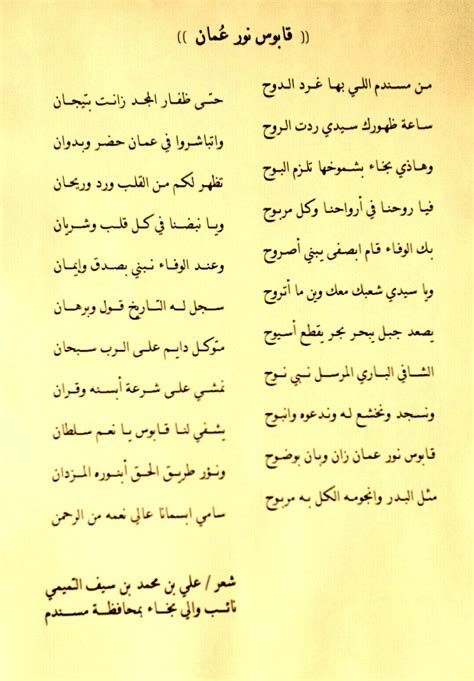 (( قابوس نور عُمان ))
من مسندم اللي بها غرد الدوح حتى ظفار المجد زانت بتيجان
ساعة ظهورك سيدي ردت الروح واتباشروا في عمان حضر وبدوان
وهاذي بخاء بشموخها تلزم البوح تظهر لكم من القلب ورد وريحان
فيا روحنا في أرواحنا وكل مربوح ويا نبضنا في كل قلب وشريان
بك الوفاء قام ابصفى يبني أصروح وعند الوفاء نبني بصدق وإيمان
ويا سيدي شعبك معك وين ما أتروح سجل له التاريخ قول وبرهان
يصعد جبل يبحر بحر يقطع أسيوح متوكل دايم على الرب سبحان
الشافي الباري المرسل نبي نوح نمشي على شرعة أبسنه وقران
ونسجد ونخشع له وندعوه وانبوح يشفي لنا قابوس يا نعم سلطان
قابوس نور عمان زان وبان بوضوح ونور طريق الحق أبنوره المزدان
مثل البدر وانجومه الكل به مربوح سامي ابسمانا عالي نعمه من الرحمن
شعر / علي بن محمد بن سيف التميمي
نائب والي بخاء بمحافظة مسندم